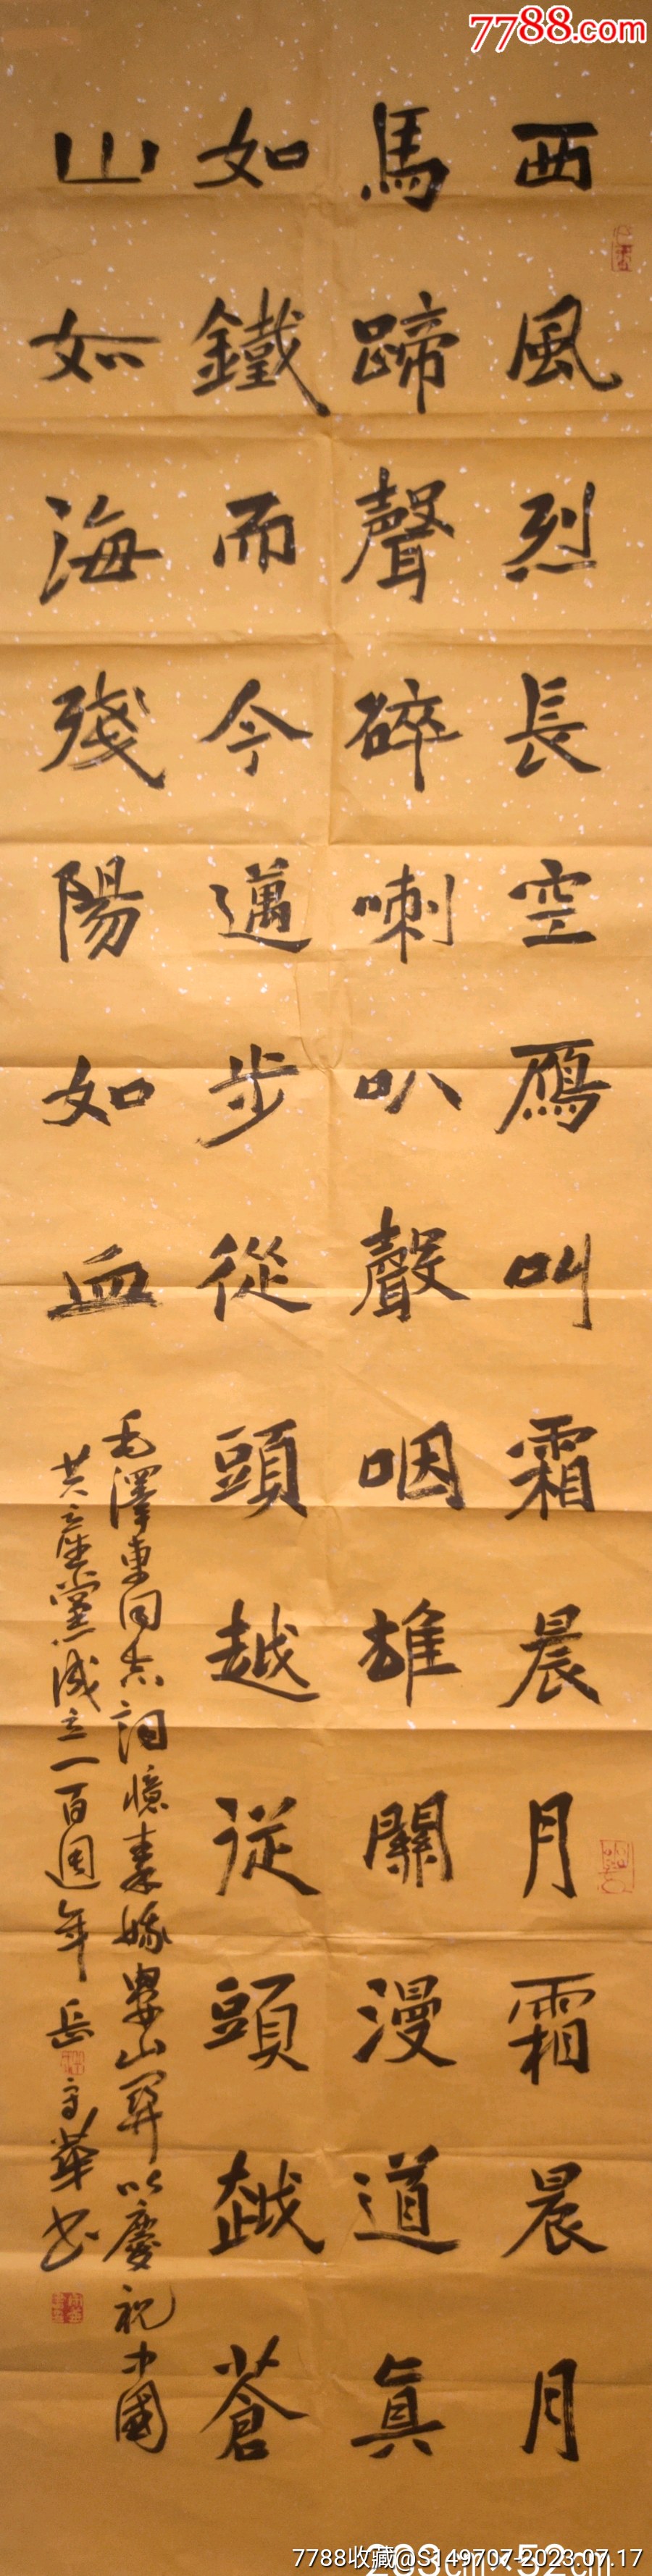 7788.com
西風烈長空鴈叫霜晨月霜晨月
馬蹄聲碎喇叭聲咽雄關漫道眞
如鐵而今邁步從頭越従頭越蒼
山如海殘陽如血
毛澤東同志詞憶秦娥婁山関以慶祝中國
共產黨成立一百週年岳守華书
283cm×52cm
7788收藏@S149707-2023.07.17